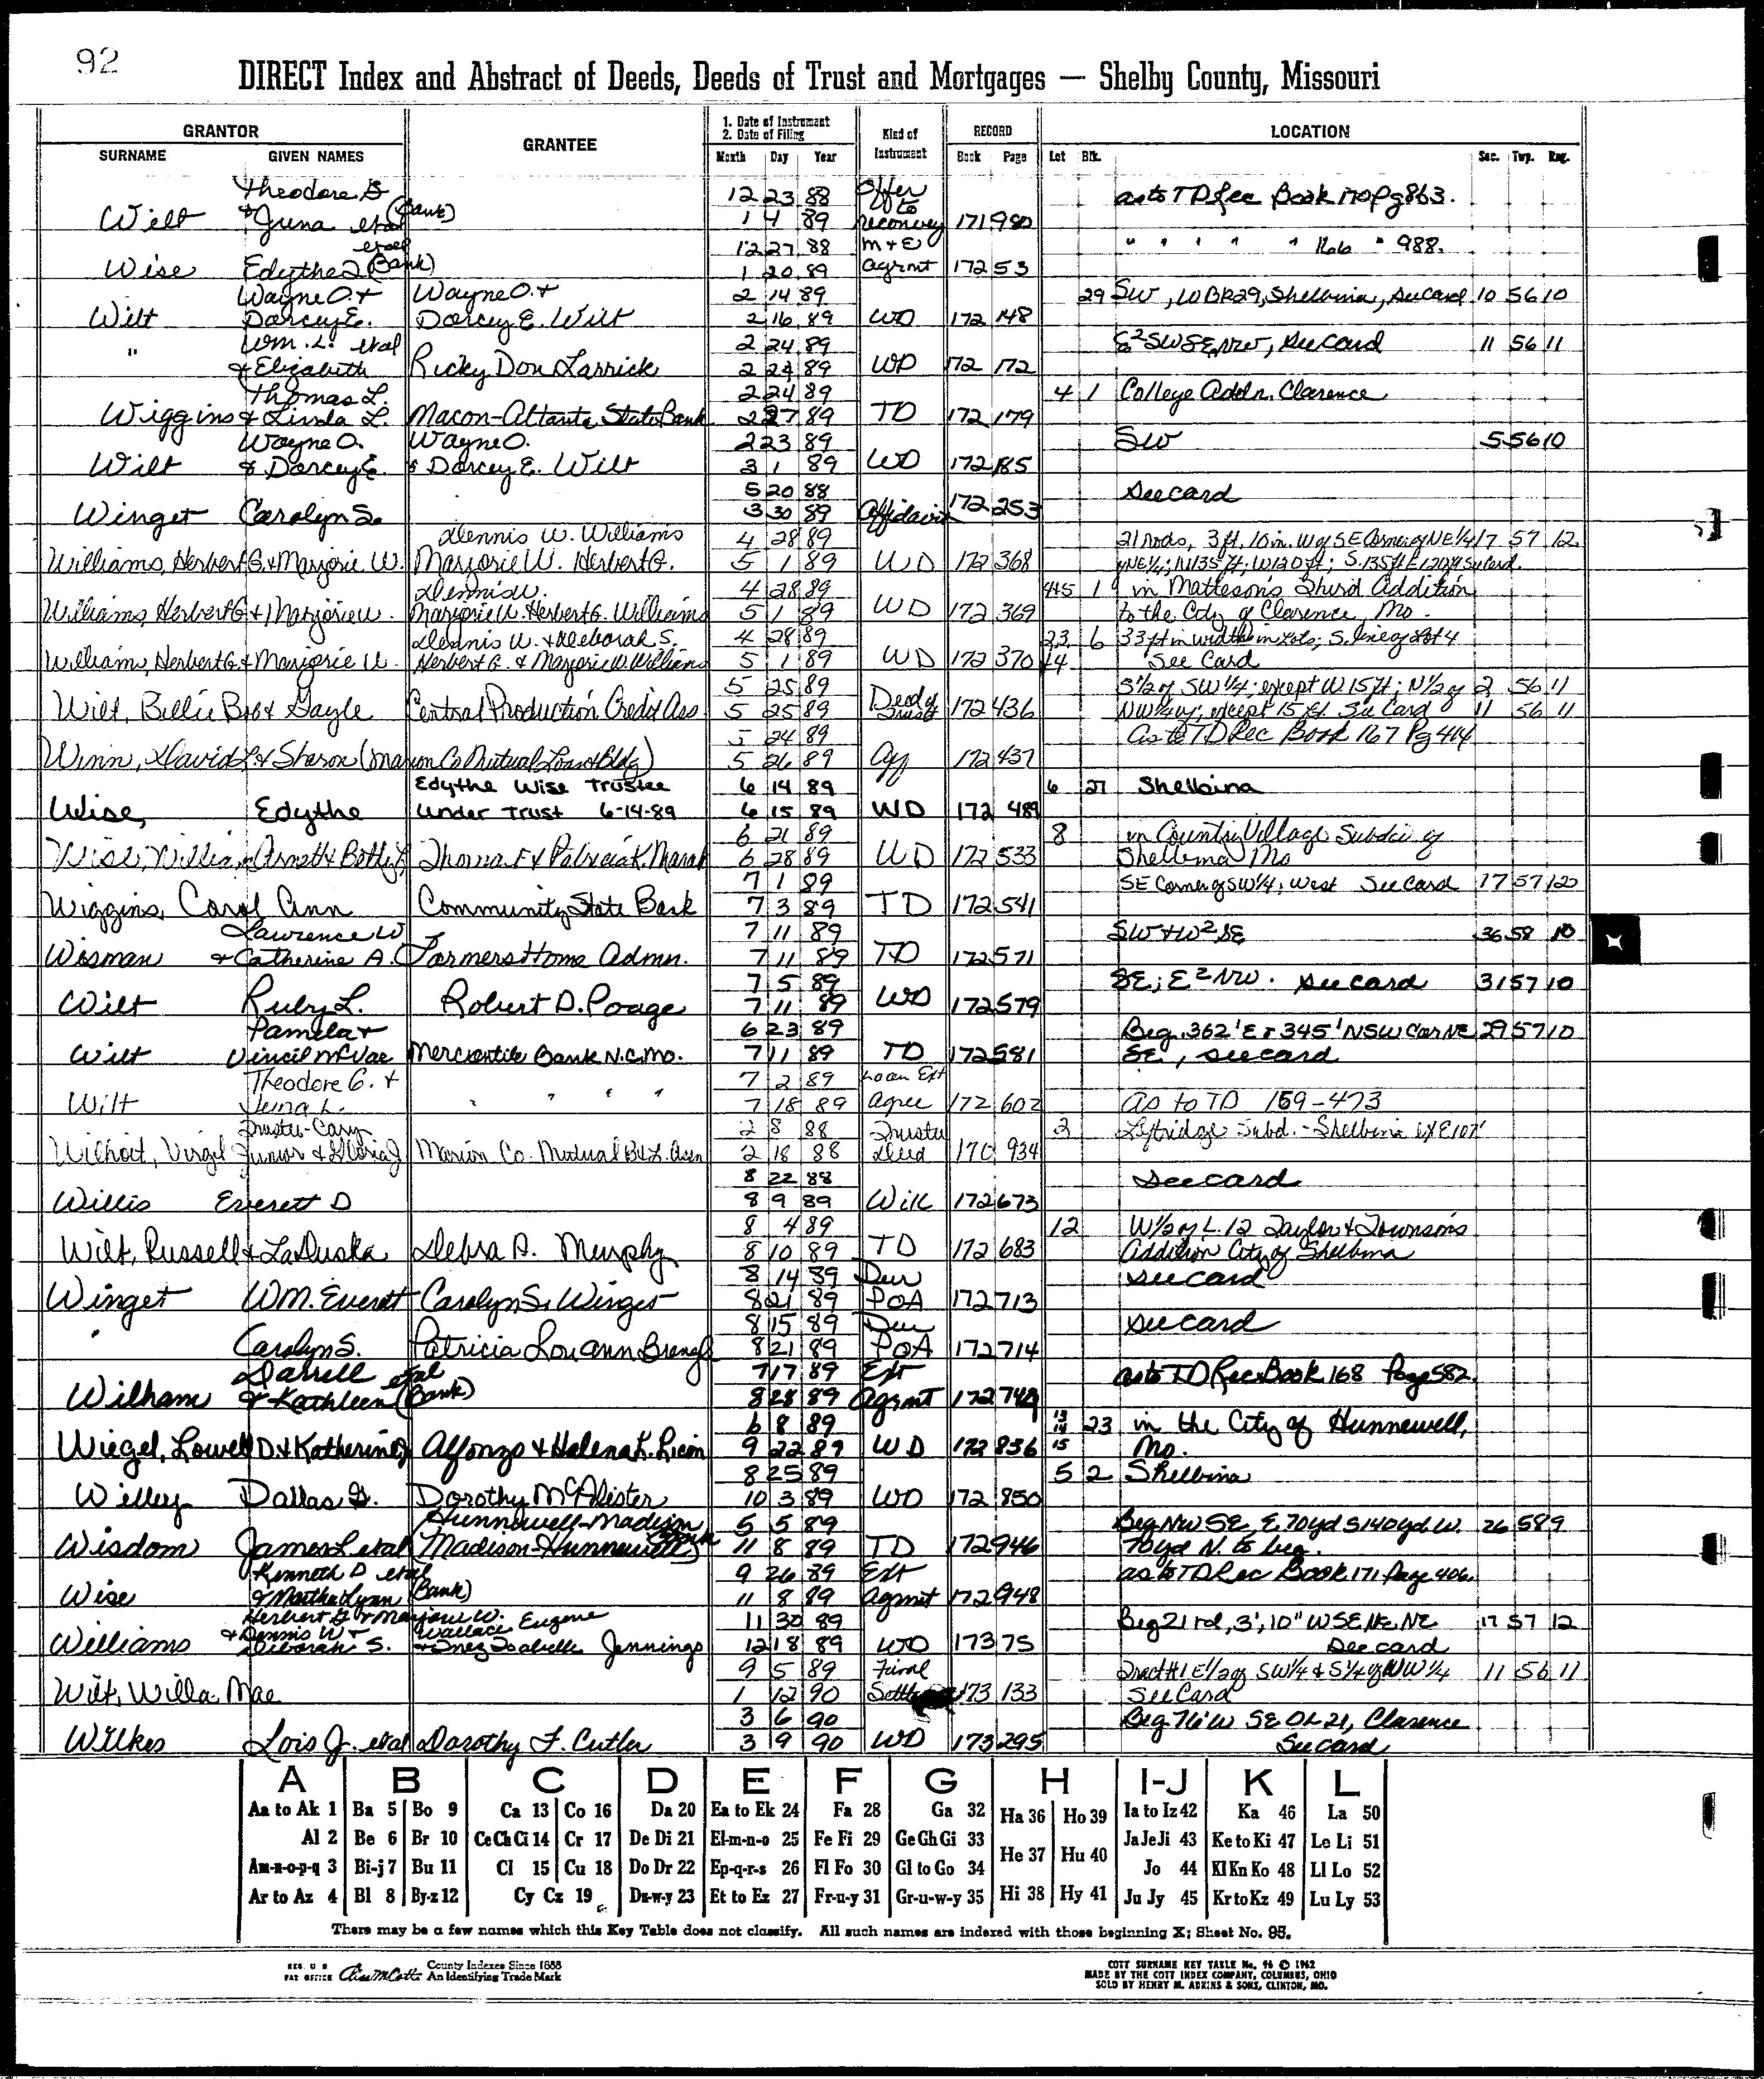 92
DIRECT Index and Abstract of Deeds, Deeds of Trust and Mortgages — Shelby County, Missouri
GRANTOR
SURNAME GIVEN NAMES
GRANTEE
1. Date of Instrument
2. Date of Filing
Month Day Year
Kind of Instrument
RECORD
Book Page
LOCATION
Lot Blk. Sec. Twp. Rng.
Theodore G 12 23 88 Offer to as to TD Rec Book 170 Pg 863.
Wilt & Juna etal (Bank) 1 4 89 reconvey 171 980
etal 12 27 88 M + E " " " " " 166 " 988.
Wise Edythe I (Bank) 1 20 89 agrmt 172 53
Wayne O. + Wayne O. + 2 14 89 29 SW, WBR29, Shelbina, see card 10 56 10
Wilt Darcey E. Darcey E. Wilt 2 16 89 WD 172 148
Wm. L. etal 2 24 89 E2 SW SE NW, see card 11 56 11
" & Elizabeth Ricky Don Larrick 2 24 89 WD 172 172
Thomas L. 2 24 89 4 1 College Addn. Clarence
Wiggins & Linda L. Macon-Atlanta State Bank 2 27 89 TD 172 179
Wayne O. Wayne O. 2 23 89 SW 5 56 10
Wilt & Darcey E. & Darcey E. Wilt 3 1 89 WD 172 185
5 20 88 see card
Winget Carolyn S. 3 30 89 Affidavit 172 253
Dennis W. Williams 4 28 89 21 rods, 3 ft. 10 in. W of SE Corner of NE 1/4 17 57 12
Williams, Herbert G. & Marjorie W. Marjorie W. Herbert G. 5 1 89 WD 172 368 of NE 1/4; N 135 ft; W 120 ft; S. 135 ft E 120 ft See card.
Dennis W. 4 28 89 4&5 1 in Matteson's Third Addition
Williams, Herbert G & Marjorie W. Marjorie W. Herbert G. Williams 5 1 89 WD 172 369 to the City of Clarence, Mo.
Dennis W. & Deborah S. 4 28 89 2,3, 6 33 ft in width in Lots; S. line of Lot 4
Williams, Herbert G. & Marjorie W. Herbert G. & Marjorie W. Williams 5 1 89 WD 172 370 &4 See Card
5 25 89 Deed of S 1/2 of SW 1/4; except W 15 ft; N 1/2 of 2 56 11
Wilt, Billie Bob & Gayle Central Production Credit Ass 5 25 89 Trust 172 436 NW 1/4 of; except 15 ft. See Card 11 56 11
5 24 89 As to TD Rec Book 167 Pg 414
Winn, David L. & Sharon (Marion Co Mutual Loan & Bldg) 5 26 89 172 437
Edythe Wise Trustee 6 14 89 6 27 Shelbina
Wise, Edythe Under Trust 6-14-89 6 15 89 WD 172 489
6 21 89 8 in Country Village Subdi of
Wise, William Arnett & Betty L Thomas F & Patricia K. Marsh 6 28 89 WD 172 533 Shelbina Mo
7 1 89 SE Corner of SW 1/4; West See Card 17 57 12
Wiggins, Carol Ann Community State Bank 7 3 89 TD 172 541
Lawrence W 7 11 89 SW & W2 SE 36 58 10
Wisman & Catherine A. Farmers Home Admn. 7 11 89 TD 172 571
7 5 89 SE; E2 NW. see card 31 57 10
Wilt Ruby L. Robert D. Poage 7 11 89 WD 172 579
Pamela & 6 23 89 Beg. 362' E & 345' N SW Cor NE 29 57 10
Wilt Vincil McVae Mercantile Bank N.C. Mo. 7 11 89 TD 172 581 SE, see card
Theodore G. & 7 2 89 Loan Ext
Wilt Juna L. " " " " 7 18 89 Agree 172 602 As to TD 159-473
Trustee-Cary 2 8 88 Trustee 2 Lytridge Subd. - Shelbina ex E 107'
Wilhoit, Virgil Junior & Gloria J Marion Co. Mutual B & L Assn 2 18 88 Deed 170 934
8 22 88 see card
Willis Everett D 8 9 89 Will 172 673
8 4 89 12 W 1/2 of L. 12 Taylor & Townson's
Wilt, Russell & LaDuska Debra A. Murphy 8 10 89 TD 172 683 Addition City of Shelbina
8 14 89 Dur see card
Winget WM. Everett Carolyn S. Winget 8 21 89 POA 172 713
8 15 89 Dur see card
" Carolyn S. Patricia Lou Ann 8 21 89 POA 172 714
Darrell etal 7 17 89 Ext as to TD Rec Book 168 Page 582.
Wilham & Kathleen (Bank) 8 28 89 Agrmt 172 748
6 8 89 13 14 15 23 in the City of Hunnewell,
Wiegel, Lowell D. & Katherine Alfonzo & Helena K. Ricon 9 22 89 WD 172 836 Mo.
8 25 89 5 2 Shelbina
Willey Dallas G. Dorothy McAlister 10 3 89 WD 172 850
Hunnewell-Madison 5 5 89 Beg NW SE, E. 70 yd S 140 yd W. 26 58 9
Wisdom James L etal (Madison-Hunnewell Bank) 11 8 89 TD 172 946 70 yd N. to beg.
Kenneth D etal 9 26 89 Ext as to TD Rec Book 171 Page 406.
Wise & Martha Lynn (Bank) 11 8 89 Agrmt 172 948
Herbert G & Marjorie W. Eugene 11 30 89 Beg 21 rd, 3', 10" W SE NE NE 17 57 12
Williams & Dennis W & Deborah S. Wallace & Inez Isabelle Jennings 12 18 89 WD 173 75 See card
9 5 89 Final Tract #1 E 1/2 of SW 1/4 & S 1/4 of NW 1/4 11 56 11
Wilt, Willa Mae 1 12 90 173 133 See Card
3 6 90 Beg 76' W SE OL 21, Clarence
Wilkes Lois J. etal Dorothy F. Cutler 3 9 90 WD 173 295 See card
A B C D E F G H I-J K L
Aa to Ak 1 Ba 5 Bo 9 Ca 13 Co 16 Da 20 Ea to Ek 24 Fa 28 Ga 32 Ha 36 Ho 39 Ia to Iz 42 Ka 46 La 50
Al 2 Be 6 Br 10 Ce Ch Ci 14 Cr 17 De Di 21 El-m-n-o 25 Fe Fi 29 Ge Gh Gi 33 He 37 Hu 40 Ja Je Ji 43 Ke to Ki 47 Le Li 51
Am-n-o-p-q 3 Bi-j 7 Bu 11 Cl 15 Cu 18 Do Dr 22 Ep-q-r-s 26 Fl Fo 30 Gl to Go 34 Jo 44 Kl Kn Ko 48 Ll Lo 52
Ar to Az 4 Bl 8 By-z 12 Cy Cz 19 Du-w-y 23 Et to Ez 27 Fr-u-y 31 Gr-u-w-y 35 Hi 38 Hy 41 Ju Jy 45 Kr to Kz 49 Lu Ly 53
There may be a few names which this Key Table does not classify. All such names are indexed with those beginning X; Sheet No. 95.
REG. U S PAT OFFICE County Indexes Since 1888
An Identifying Trade Mark
COTT SURNAME KEY TABLE No. 96 © 1962
MADE BY THE COTT INDEX COMPANY, COLUMBUS, OHIO
SOLD BY HENRY M. ADKINS & SONS, CLINTON, MO.